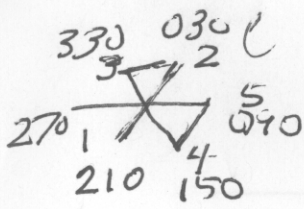 330 030
3 2
270 1 5 090
4
210 150